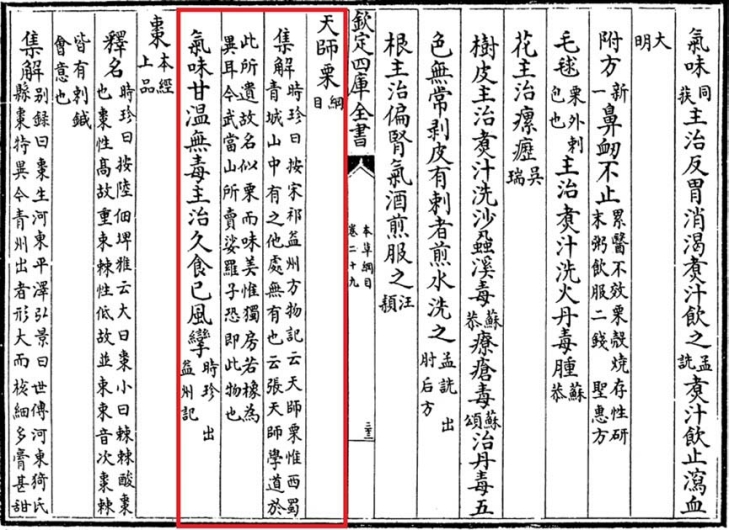 氣味同荴主治反胃消渴煑汁飲之孟詵煑汁飲止瀉血
大明
附方新一鼻衂不止累醫不效栗殼燒存性研末粥飲服二錢 聖惠方
毛毬栗外刺包也主治煑汁洗火丹毒腫蘇恭
花主治瘰癧吳瑞
樹皮主治煑汁洗沙蝨溪毒蘇恭療瘡毒蘇頌治丹毒五
色無常剥皮有刺者煎水洗之孟詵出肘后方
根主治偏腎氣酒煎服之汪頴
欽定四庫全書
本草綱目
卷二十九
二十三
天師栗綱目
集解時珍曰按宋祁益州方物記云天師栗惟西蜀青城山中有之他處無有也云張天師學道於
此所遺故名似栗而味美惟獨房若橡為異耳今武當山所賣娑羅子恐即此物也
氣味甘温無毒主治久食已風攣時珍出益州記
棗本經上品
釋名時珍曰按陸佃埤雅云大曰棗小曰棘棘酸棗也棗性髙故重朿棘性低故並朿朿音次棗棘
皆有刺鍼會意也
集解别録曰棗生河東平澤弘景曰世傳河東猗氏縣棗特異今青州出者形大而核細多膏甚甜